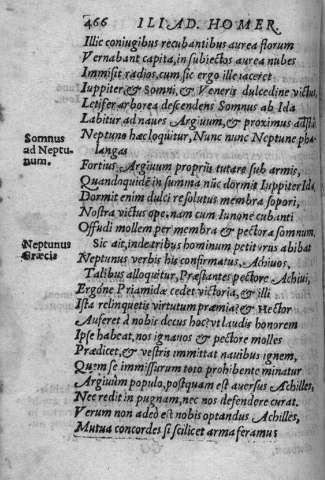 466 ILIAD. HOMER.
Illic coniugibus recubantibus aurea florum
Vernabant capita, in subiectos aurea nubes
Immisit radios, cum sic ergo ille iaceret
Iuppiter, & Somni, & Veneris dulcedine victus,
Letifer arborea descendens Somnus ab Ida
Labitur ad naues Argiuum, & proximus adstās
Somnus ad Neptunum.
Neptuno hæc loquitur, Nunc nunc Neptune pha-
langas
Fortius Argiuum propriis tutare sub armis,
Quandoquidē in summa nūc dormit Iuppiter Ida,
Dormit enim dulci resolutus membra sopori,
Nostra victus ope, nam cum Iunone cubanti
Offudi mollem per membra & pectora somnum.
Neptunus Græcis
Sic ait, inde tribus hominum petiturus abibat
Neptunus verbis his confirmatus, Achiuos,
Talibus alloquitur, Præstantes pectore Achiui,
Ergóne Priamidæ cedet victoria, & illi
Ista relinquetis virtutum præmia? & Hector
Auferet à nobis decus hoc? vt laudis honorem
Ipse habeat, nos ignauos & pectore molles
Prædicet, & vestris immittat nauibus ignem,
Quem se immissurum toto prohibente minatur
Argiuûm populo, postquam est auersus Achilles,
Nec redit in pugnam, nec nos defendere curat.
Verum non adeò est nobis optandus Achilles,
Mutua concordes si scilicet arma feramus